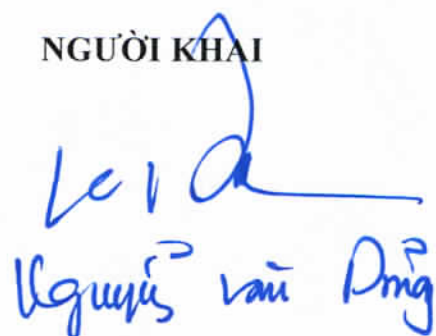 NGƯỜI KHAI
Nguyễn Văn